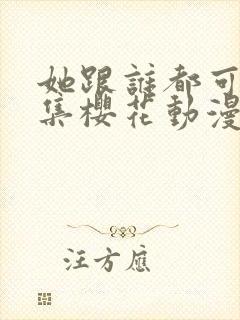 她跟誰都可
集櫻花動漫
汪方應